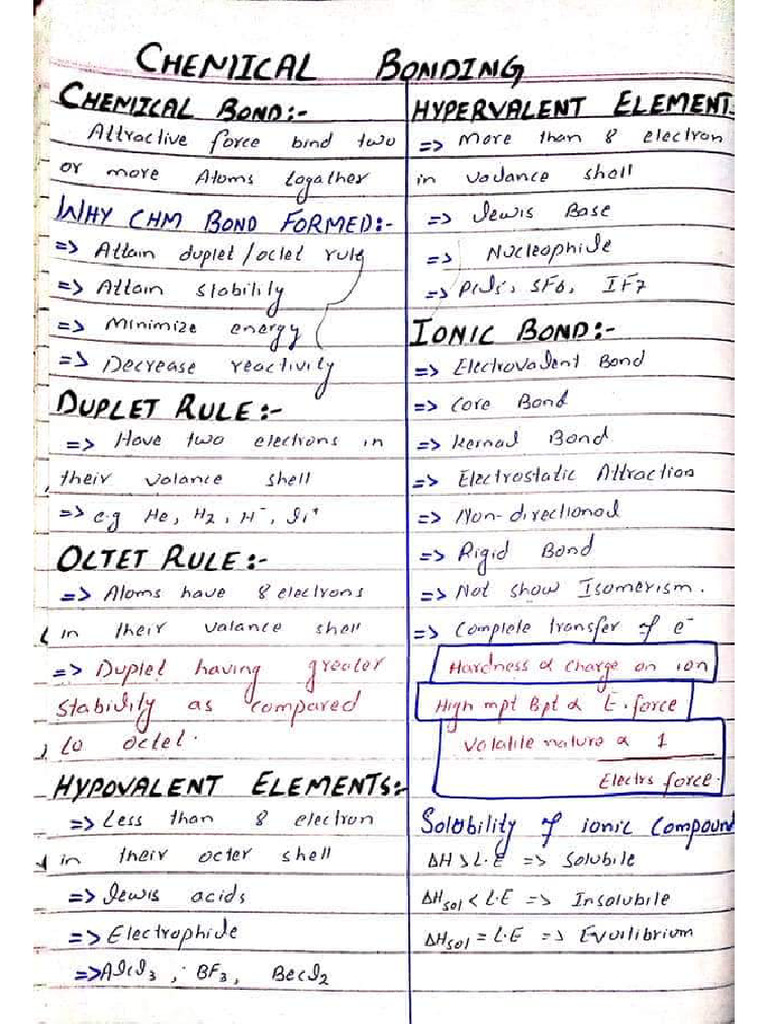 CHEMICAL BONDING
CHEMICAL BOND:-
Attractive force bind two
or more Atoms togather
WHY CHM BOND FORMED:-
=> Attain duplet/octet rule
=> Attain stability
=> Minimize energy
=> Decrease reactivity
DUPLET RULE:-
=> Have two electrons in
their valance shell
=> e.g He, H₂, H⁻, Li⁺
OCTET RULE:-
=> Atoms have 8 electrons
in their valance shell
=> Duplet having greater
stability as compared
to octet.
HYPOVALENT ELEMENTS:-
=> Less than 8 electron
in their octer shell
=> Lewis acids
=> Electrophile
=> AlCl₃, BF₃, BeCl₂
HYPERVALENT ELEMENT:
=> More than 8 electron
in valance shell
=> Lewis Base
=> Nucleophile
=> PCl₅, SF₆, IF7
IONIC BOND:-
=> Electrovalent Bond
=> Core Bond
=> Kernal Bond
=> Electrostatic Attraction
=> Non-directional
=> Rigid Bond
=> Not show Isomerism.
=> Complete transfer of e⁻
Hardness α charge on ion
High mpt Bpt α E.force
Volatile nature α 1
Electrs force.
Solubility of ionic Compound
ΔH > L.E => Solubile
ΔHsol < L.E => Insolubile
ΔHsol = L.E => Equilibrium